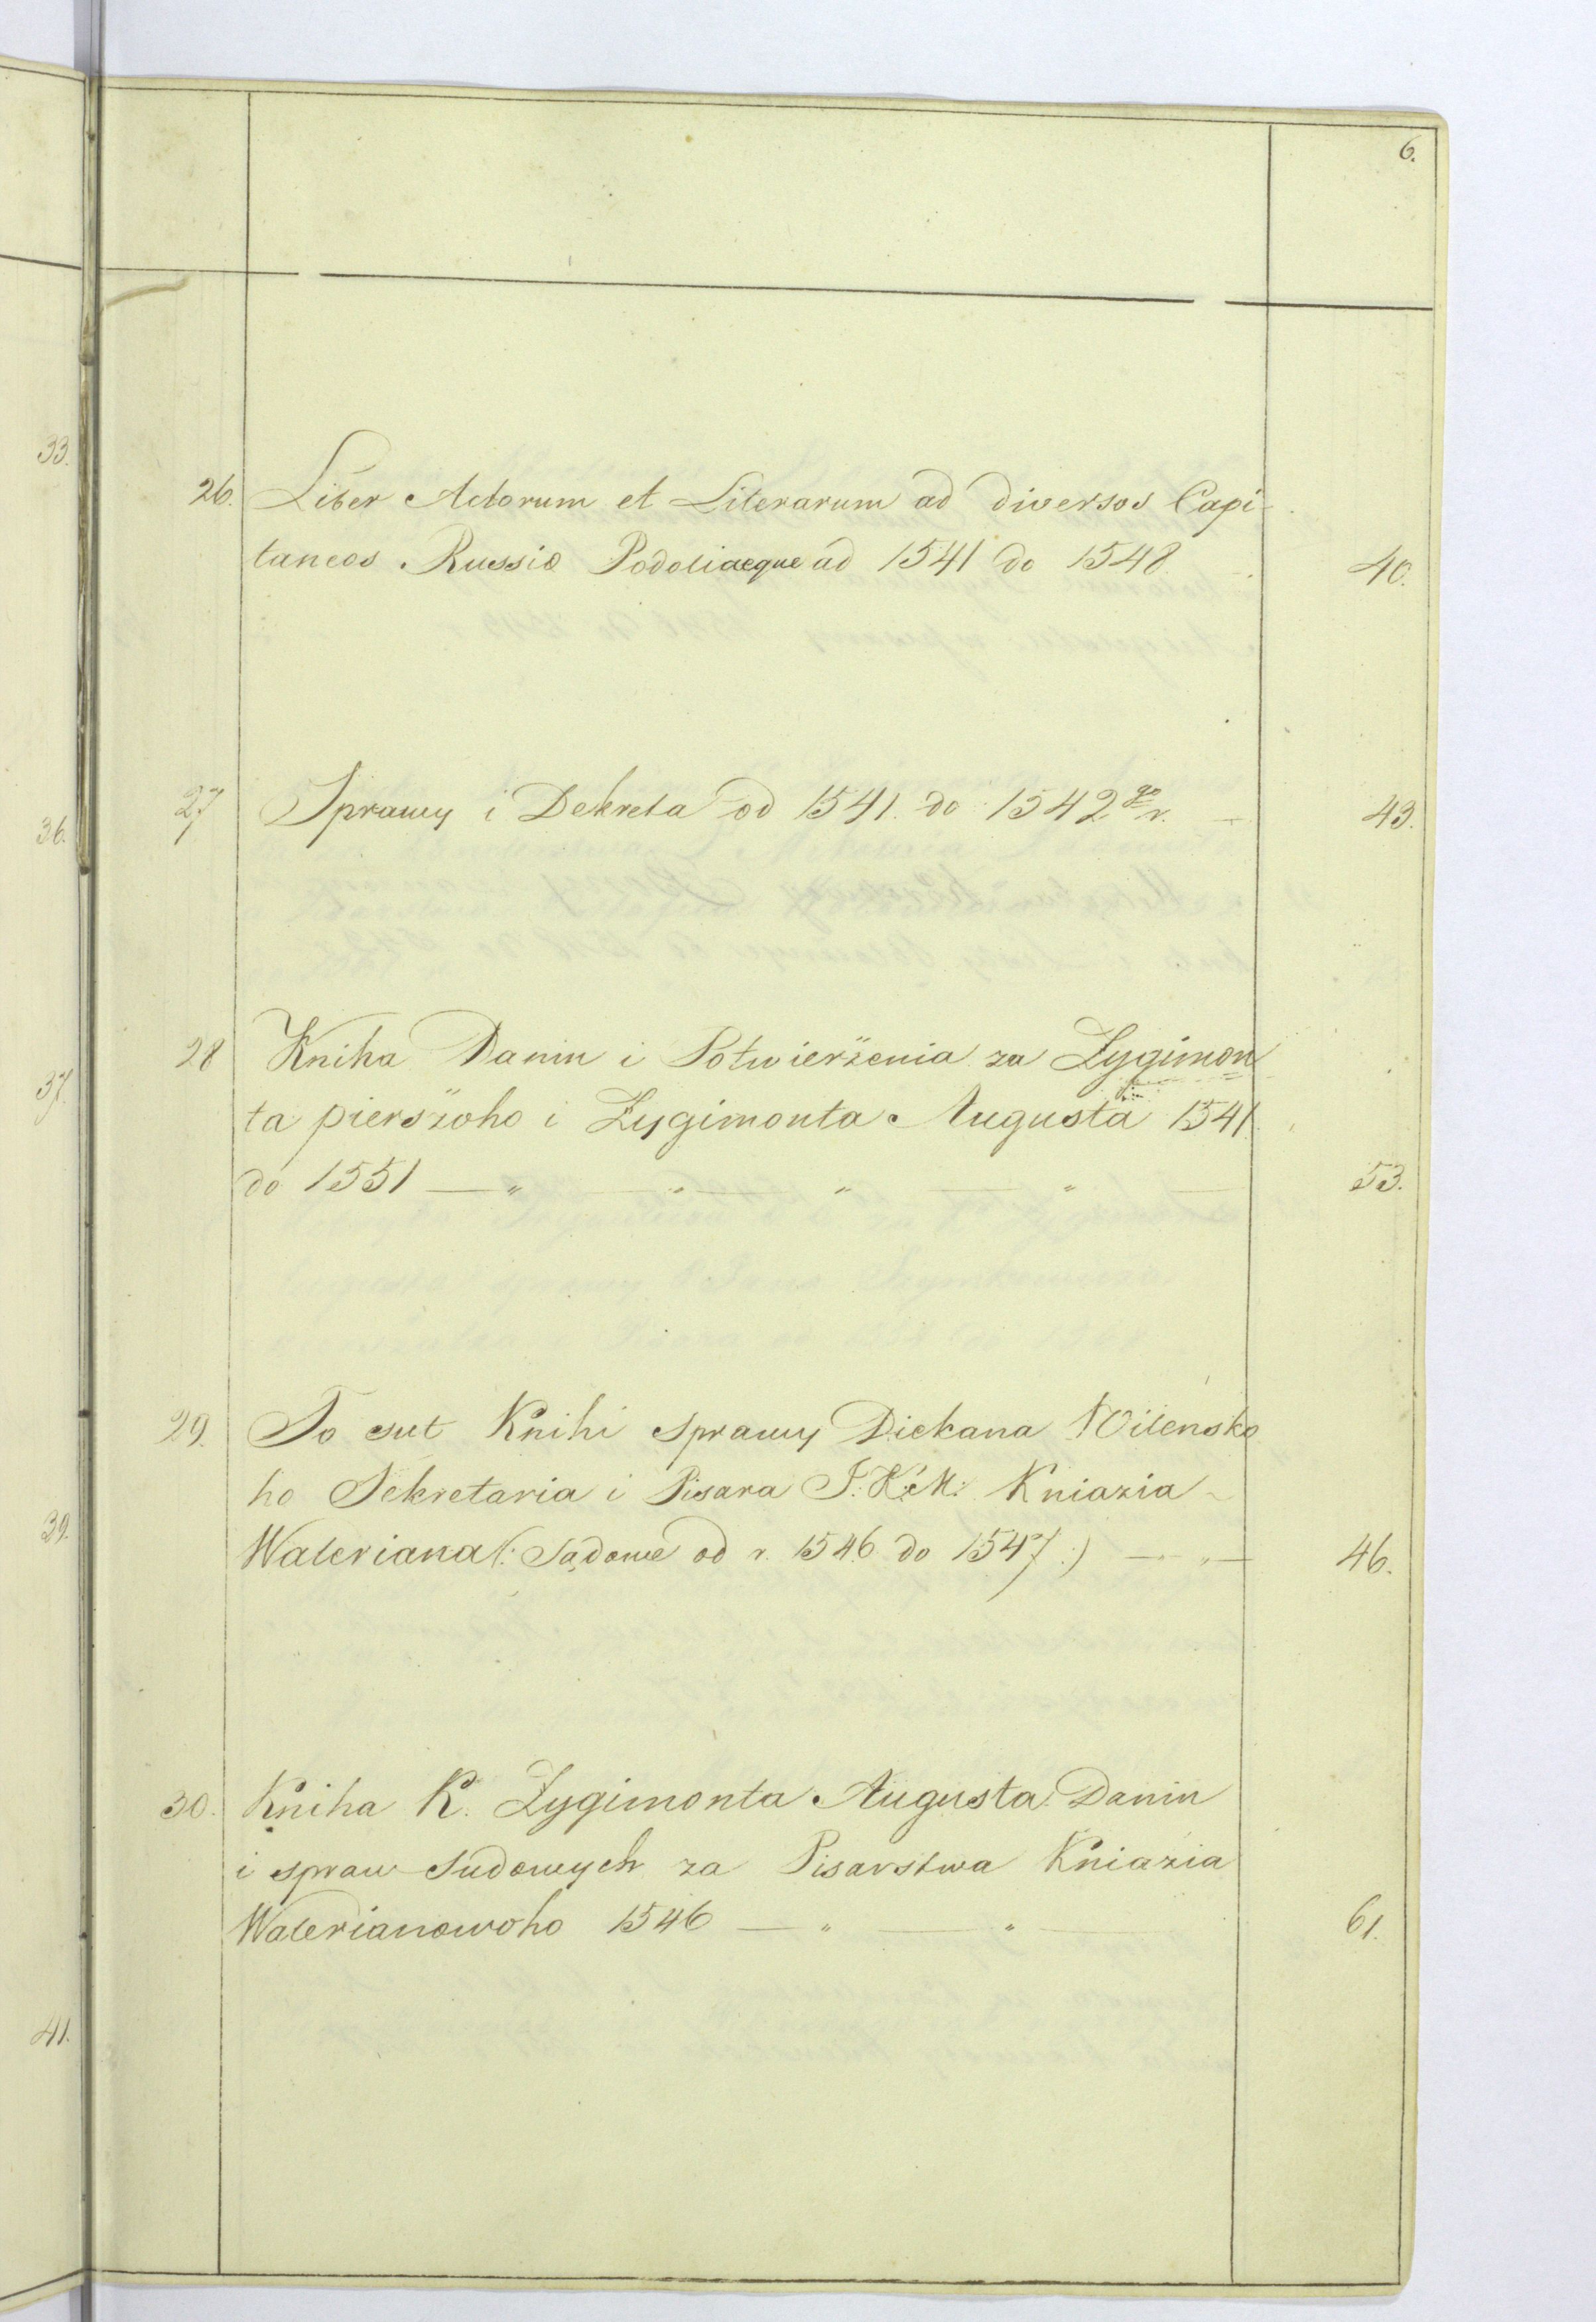 6.
33.
26. Liber Actorum et Literarum ad diversos Capi-
taneos Russiæ Podoliaeque ad 1541 do 1548. 40.
27 Sprawy i Dekreta od 1541. do 1542go r. — 43.
36.
28 Kniha Danin i Potwierżenia za Zygimon
37.
ta pierszoho i Zygimonta Augusta 1541.
do 1551 — „ — „ — „ — „ — 53.
29. To sut Knihi sprawy Diekana Wilensko
ho Sekretaria i Pisara J: K: M: Kniazia
39.
Waleriana (: Sądowe od r. 1546 do 1547 :) — „ — 46.
30. Kniha K. Zygimonta Augusta Danin
i spraw Sudowych za Pisarstwa Kniazia
Walerianowoho 1546 — „ — „ — 61.
41.